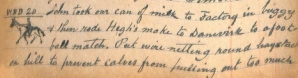 WED 20. John took our can of milk to Factory in buggy
& then rode Hegh's moke to Danevirk to a foot
ball match. Pat wire netting round haystack
on hill to prevent calves from pulling out too much